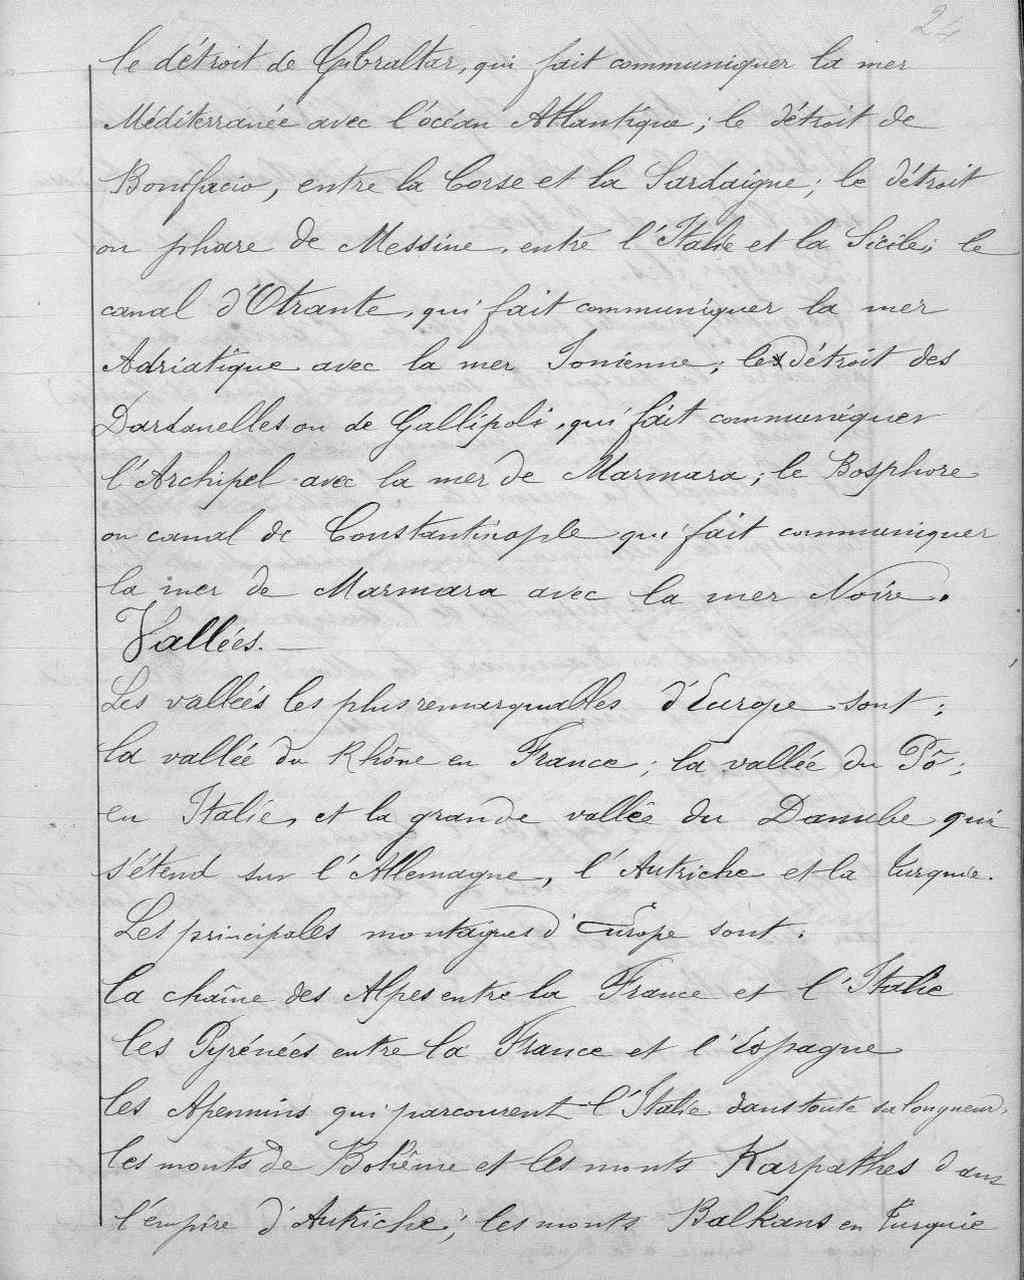 24
le détroit de Gibraltar, qui fait communiquer la mer
Méditerranée avec l'océan Atlantique ; le détroit de
Bonifacio, entre la Corse et la Sardaigne ; le détroit
ou phare de Messine, entre l'Italie et la Sicile ; le
canal d'Otrante, qui fait communiquer la mer
Adriatique avec la mer Ionienne ; le détroit des
Dardanelles ou de Gallipoli, qui fait communiquer
l'Archipel avec la mer de Marmara ; le Bosphore
ou canal de Constantinople qui fait communiquer
la mer de Marmara avec la mer Noire.
Vallées. —
Les vallées les plus remarquables d'Europe sont :
la vallée du Rhône en France ; la vallée du Pô ;
en Italie, et la grande vallée du Danube qui
s'étend sur l'Allemagne, l'Autriche et la Turquie.
Les principales montagnes d'Europe sont :
la chaîne des Alpes entre la France et l'Italie
les Pyrénées entre la France et l'Espagne
les Apennins qui parcourent l'Italie dans toute sa longueur,
les monts de Bohême et les monts Karpathes dans
l'empire d'Autriche ; les monts Balkans en Turquie